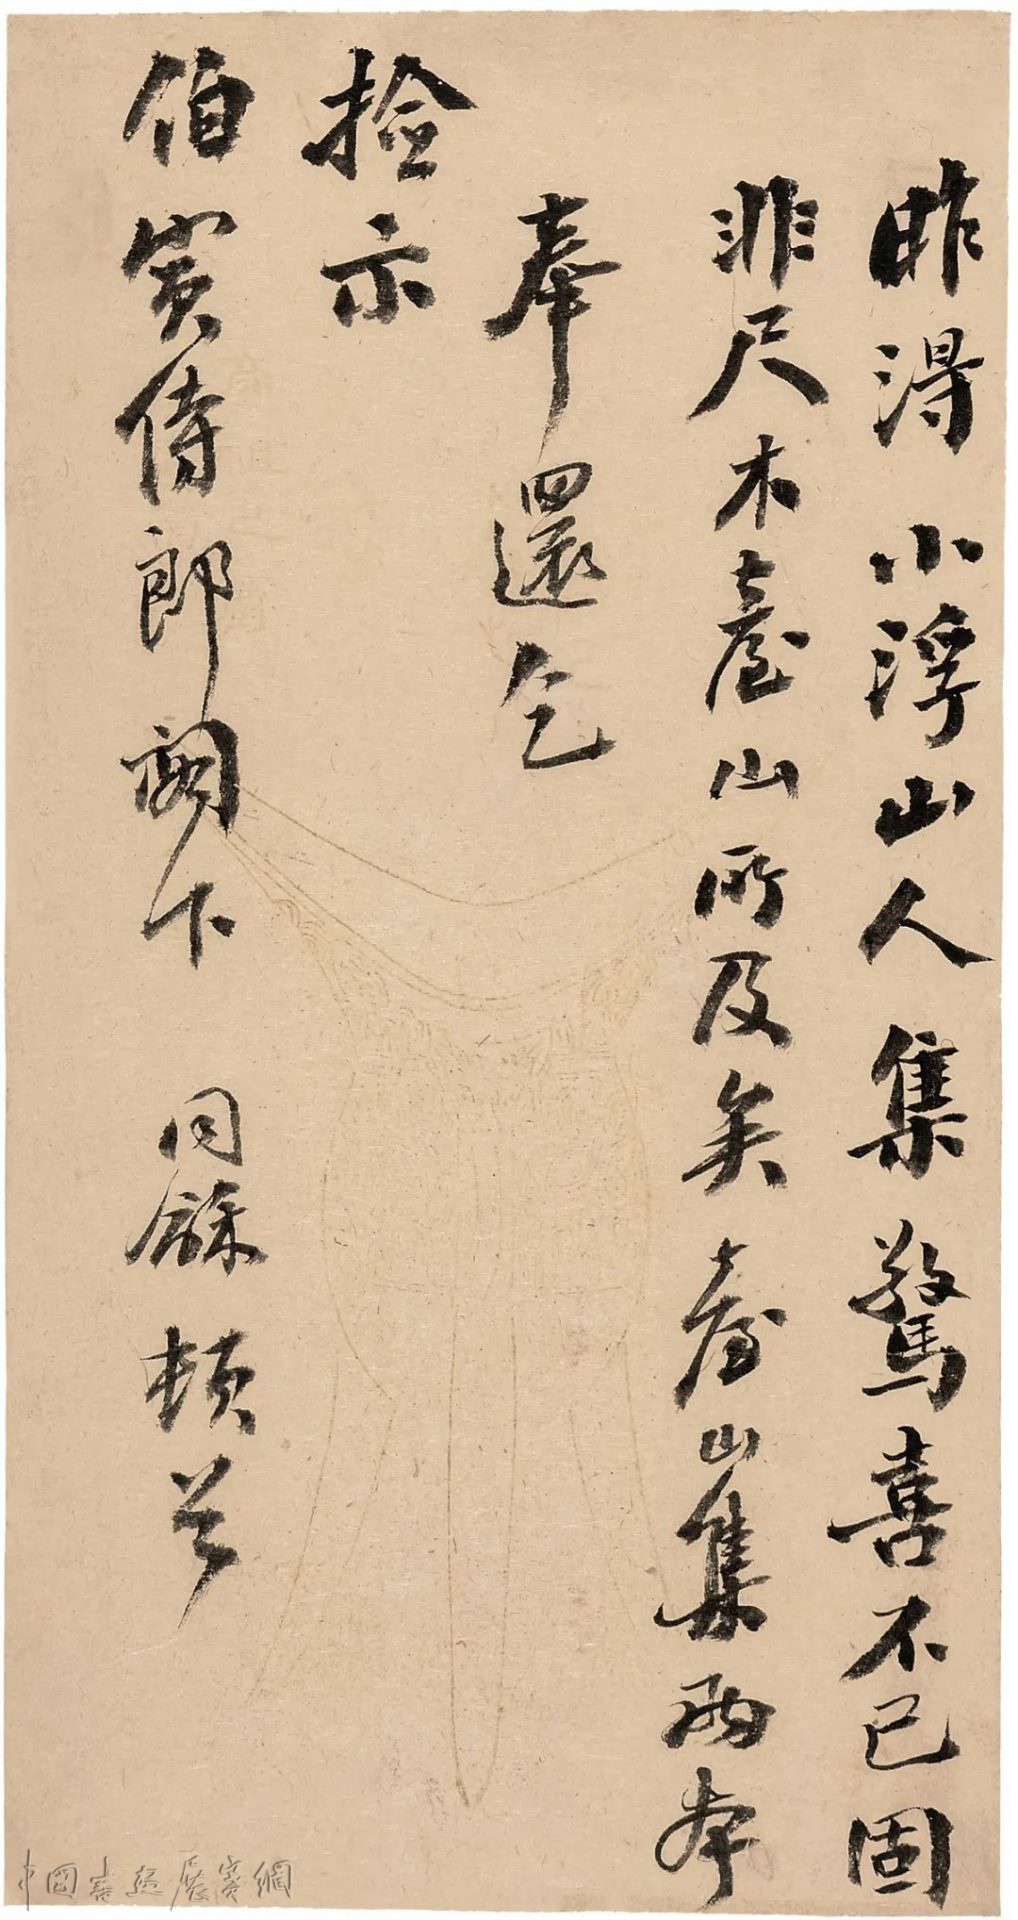 昨得小浮山人集驚喜不已固
非尺木臺山所及矣臺山集兩本
奉還乞
捡示
伯寅侍郎閣下 同龢頓首
中國書法展賽網